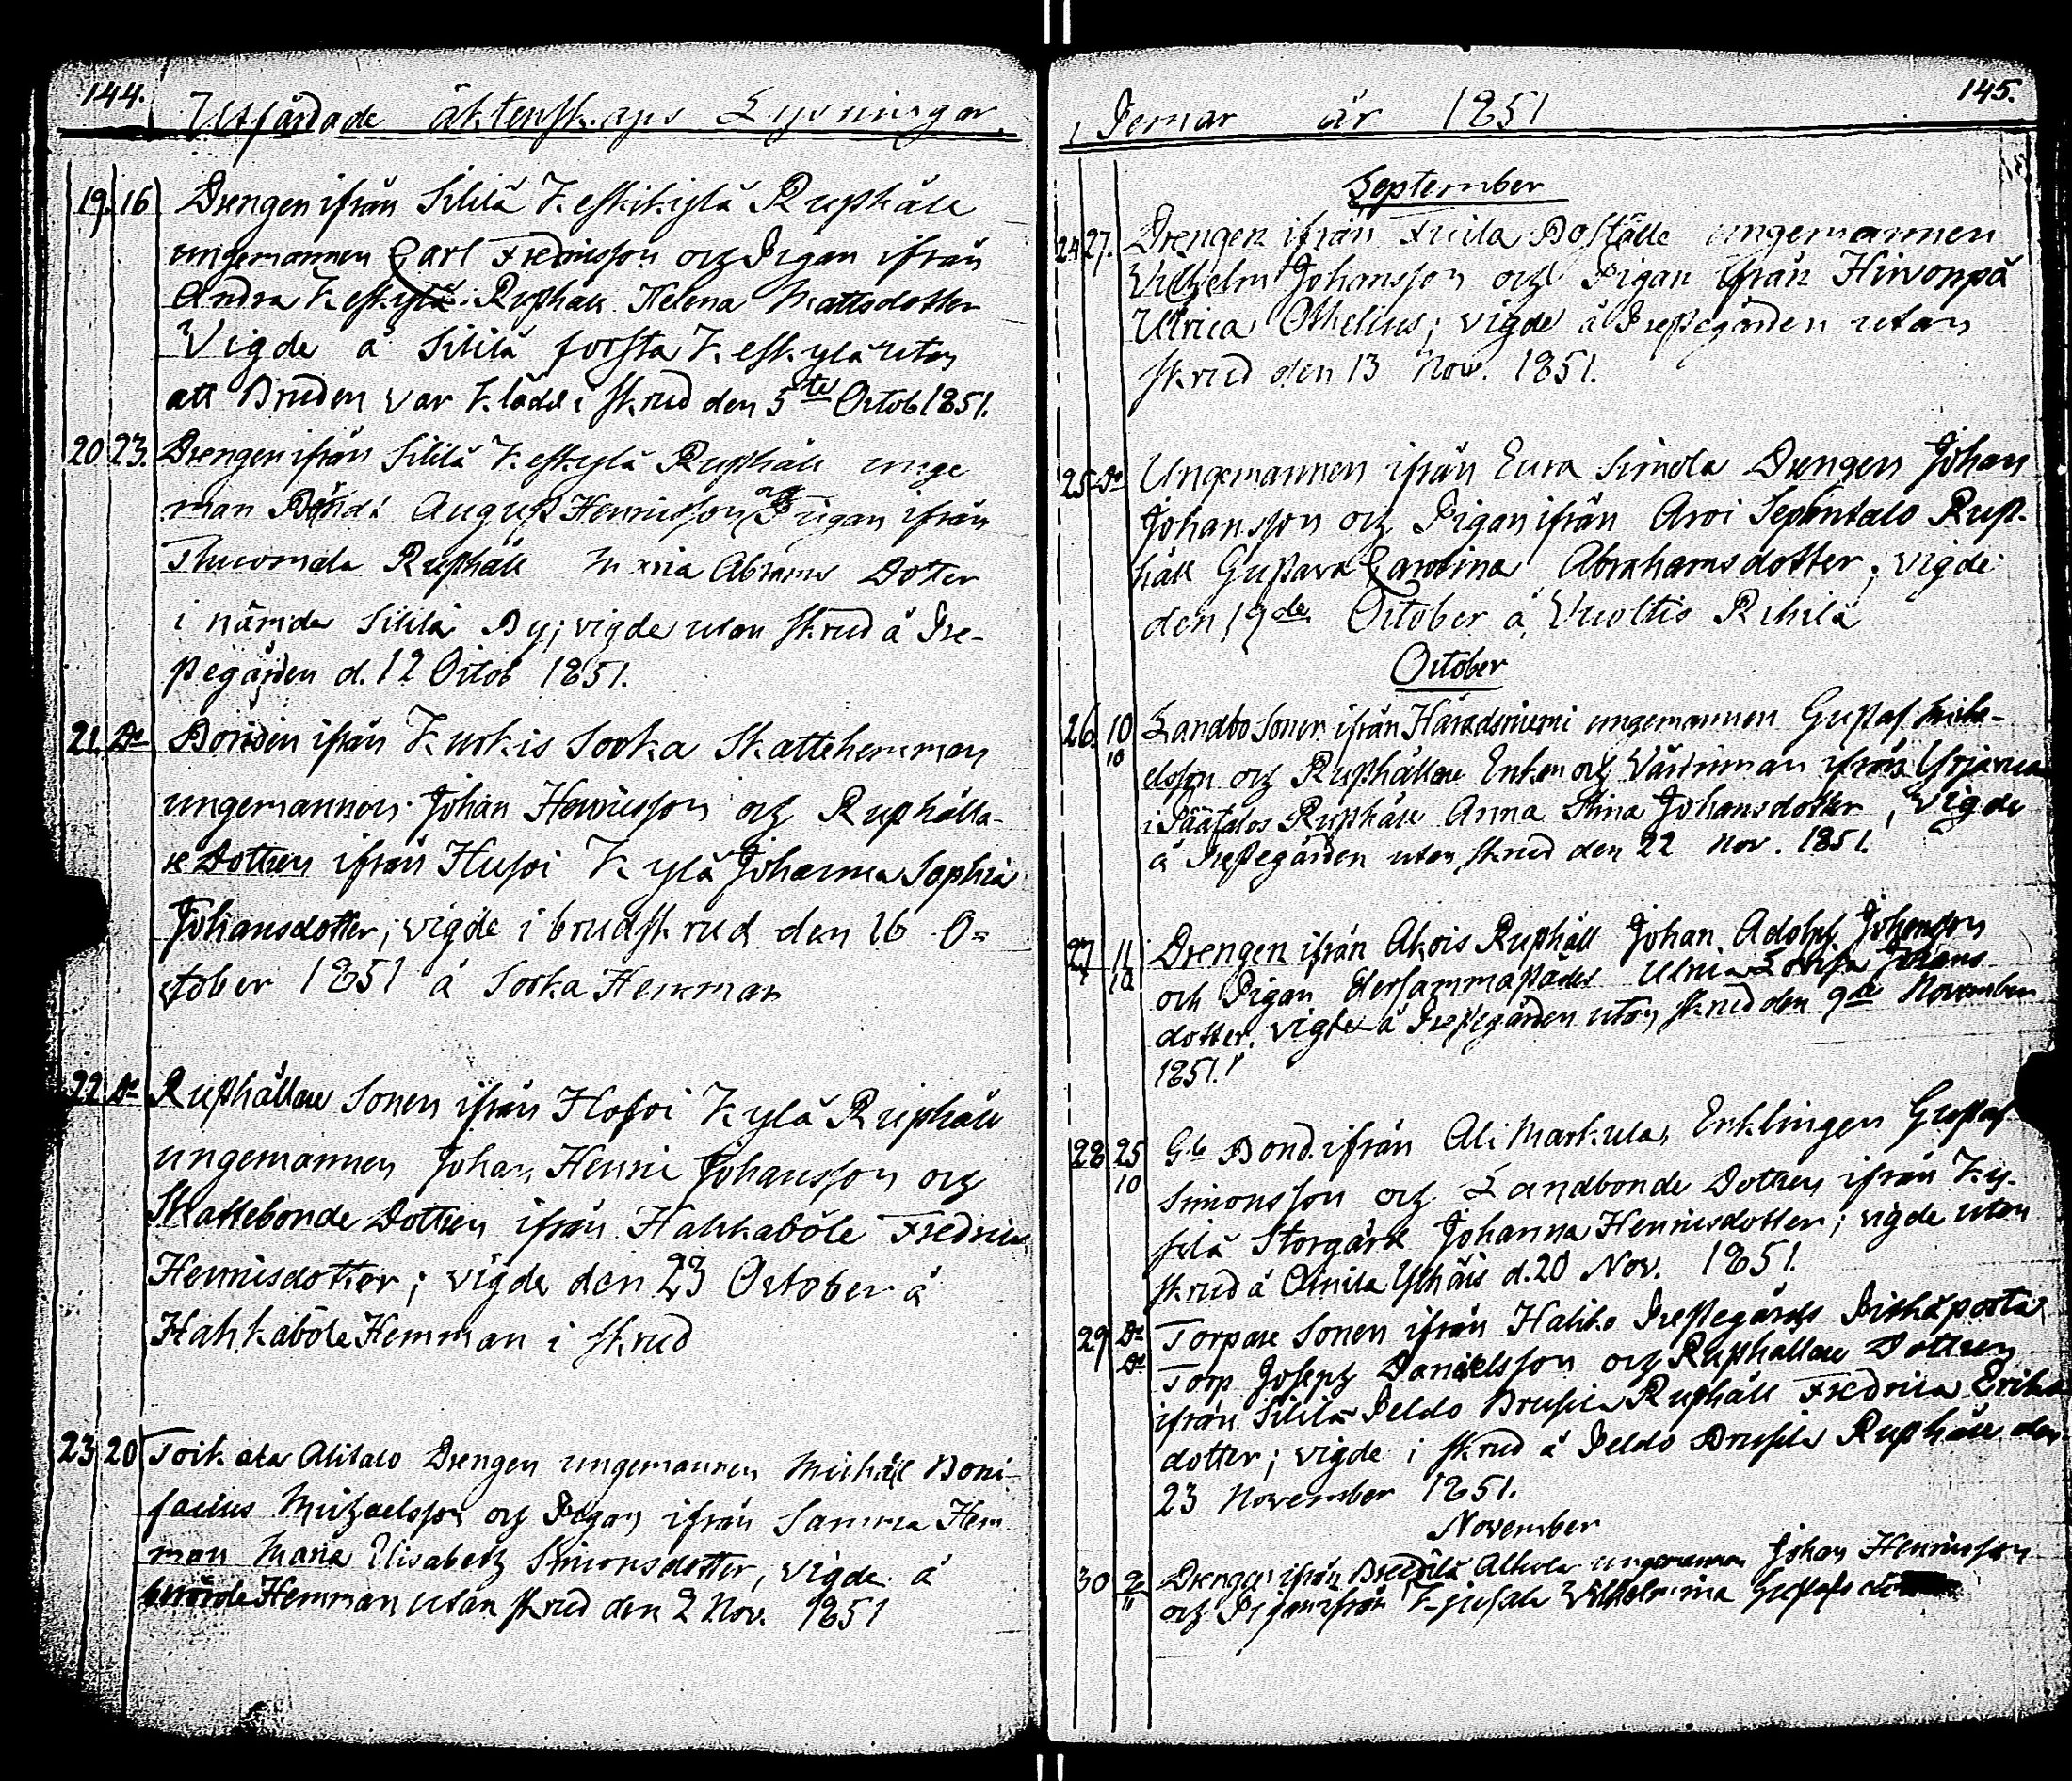 144.
Utfärdade äktenskaps Lysningar
19. 16 Drengen ifrån Sililä Keskikylä Rusthåll
ungemannen Carl Fredricsson och Pigan ifrån
Andra Keskylä Rusthåll Helena Mattsdotter
Vigde å Sililä första Keskylä utan
att Bruden var klädd i skrud den 5te Octob 1851.
20 23. Drengen ifrån Sililä Keskylä Rusthåll unge
man August Henricsson och Pigan ifrån
Rusthåll Maria Abrams Dotter
i nämde Sililä By; vigde utan skrud å Pre-
stegården d. 12 Octob 1851.
21. Do Bonden ifrån Kurkis Sorka Skattehemman
ungemannen Johan Henricsson och Rusthålla-
re Dottren ifrån Kylä Johanna Sophia
Johansdotter; vigde i brudskrud den 16 O-
ctober 1851 å Sorka Hemman
22 Do Rusthållare Sonen ifrån Kylä Rusthåll
ungemannen Johan Henric Johansson och
Skattebonde Dottren ifrån Hahkaböle Fredrica
Henricsdotter; vigde den 23 October å
Hahkaböle Hemman i skrud
23 20 Alitalo Drengen ungemannen Michael Boni-
facius Michaelsson och Pigan ifrån Samma Hem
man Maria Elisabeth Simonsdotter, vigde å
berörde Hemman utan skrud den 2 Nov. 1851
145.
i Pemar år 1851
September
24 27. Drengen ifrån Boställe ungemannen
Vilhelm Johansson och Pigan ifrån Hirvonpä
Ulrica Othelius; vigde å Prestegården utan
skrud den 13 Nov. 1851.
25 Do Ungemannen ifrån Eura Simola Drengen Johan
Johansson och Pigan ifrån Arvi Rust-
håll Gustava Carolina Abrahamsdotter; vigde
den 19de October å Vuoltis Rihilä
October
26. 10/10 Landbo Sonen ifrån ungemannen Gustaf Micha-
elsson och Rusthållare Enkan och Värdinnan ifrån
i Rusthåll Anna Stina Johansdotter, vigde
å Prestegården utan skrud den 22 Nov. 1851.
27 11/10 Drengen ifrån Akois Rusthåll Johan Adolph Johansson
och Pigan dersammastädes Ulrica Lovisa Johans
dotter, vigde å Prestegården utan skrud den 9de November
1851.
28 25/10 Gle Bond. ifrån Ali Markula, Enklingen Gustaf
Simonsson och Landbonde Dottren ifrån Ky-
silä Storgård Johanna Henricsdotter; vigde utan
skrud å d. 20 Nov. 1851.
29 Do Do Torpare Sonen ifrån Haliko Prestegårds
Torp Joseph Danielsson och Rusthållare Dottren
ifrån Sililä Peldo Brusila Rusthåll Fredrica Eriks
dotter; vigde i skrud å Peldo Brusila Rusthåll den
23 November 1851.
November
30 2/11 Drengen ifrån Alhola ungemannen Johan Henricsson
och Pigan ifrån Vilhelmina Gustafs